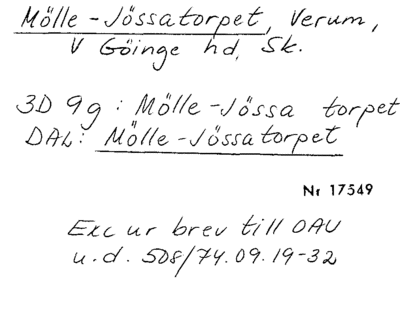 Mölle-Jössatorpet, Verum,
V Göinge hd, Sk.
3D 9g: Mölle-Jössa torpet
DAL: Mölle-Jössatorpet
Nr 17549
Exc ur brev till OAU
u.d. 508/74.09.19-32